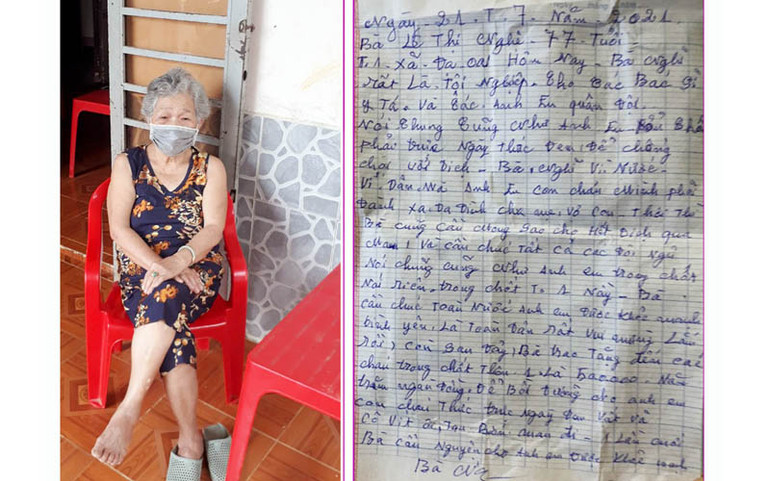 Ngày. 21. T. 7. Năm. 2021.
Bà Lê Thị Nghê. 77. Tuổi
T.1. xã. Đạ Oai Hôm Nay. Bà Nghĩ
rất Là. Tội Nghiệp. Cho Các Bác Sỉ
y Tá. Và Các. Anh Em quân Đội.
Nói Chung Cũng Như Anh Em
Phải trực Ngày Thức Đêm. Để chống
chọi với Dịch - Bà. Nghĩ Vì. Nước.
Vì. Dân. Mà Anh Em con cháu Mình phải
Đành xa. Da Đình cha mẹ, Vợ Con - Thôi Thì
Bà cũng Cầu Mong Sao cho Hết Dịch qua
Và cầu chúc Tất cả các Đội Ngũ
Nói chung cũng Như Anh em trong chốt
Nói riêng. trong chốt T. 1 Này - Bà
cầu chúc Toàn Nước Anh em Được Khỏe mạnh
bình yên. Là Toàn Dân rất Vui mừng Lắm
rồi, Còn Sau Đây, Bà trao Tặng đến các
cháu trong chốt Thôn 1. Là 500000. Năm
trăm ngàn đồng. Để Bồi Dưỡng cho anh em
con cháu Thức trực Ngày Đêm Vất Vả
Cô Vít 1 Lần cuối
Bà cầu Nguyện cho Anh em Được Khỏe mạnh
Bà